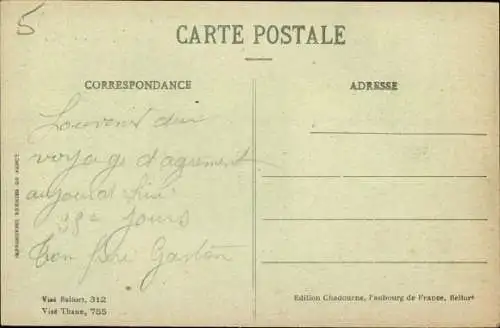 5
CARTE POSTALE
CORRESPONDANCE
ADRESSE
Souvenir du
voyage d'agrement
aujourd'hui
35e jours
Ton frère Gaston
IMPRIMERIES RÉUNIES DE NANCY
Visé Belfort, 312
Visé Thann, 755
Edition Chadourne, Faubourg de France, Belfort